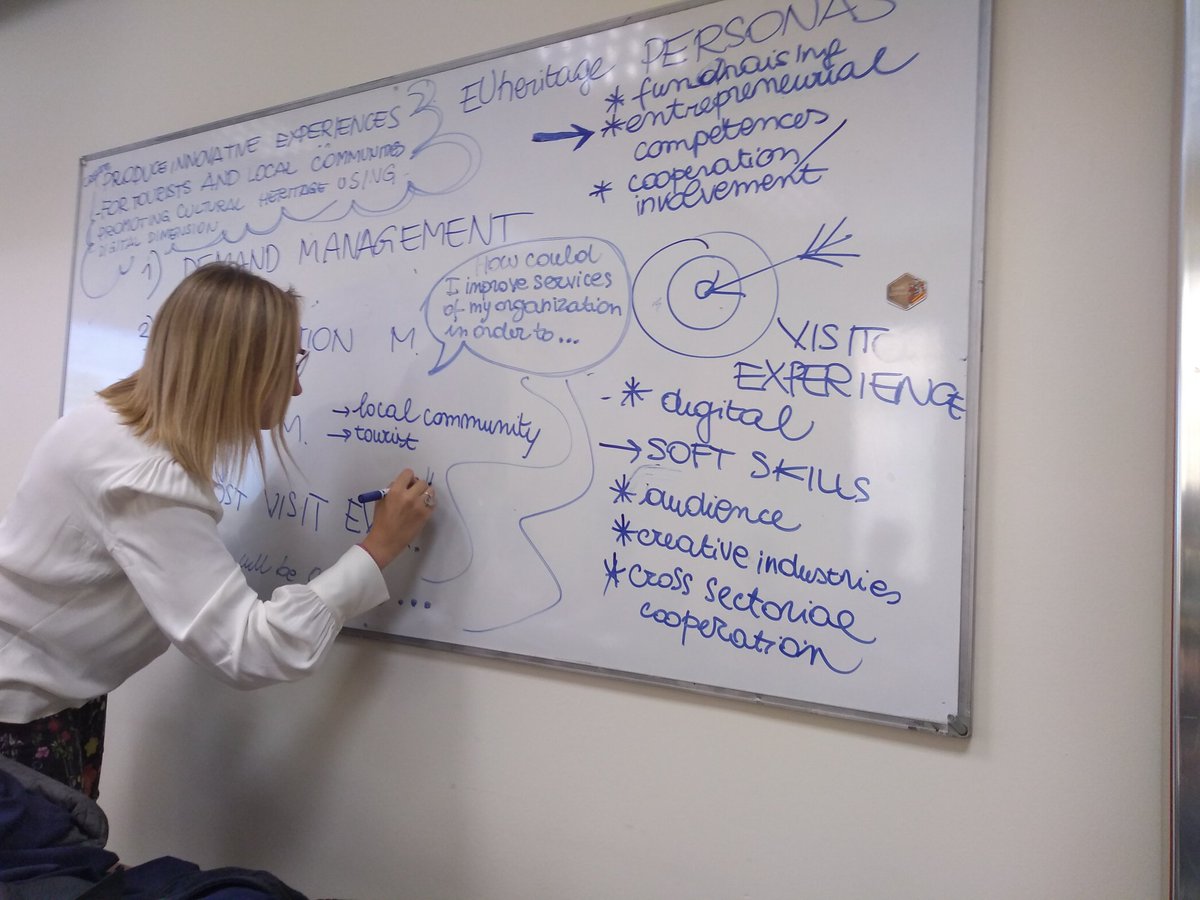 - PRODUCE INNOVATIVE EXPERIENCES
- FOR TOURISTS AND LOCAL COMMUNITIES
PROMOTING CULTURAL HERITAGE USING
DIGITAL DIMENSION
1) DEMAND MANAGEMENT
2)
M.
M.
→ local community
→ tourist
VISIT
How could
I improve services
of my organization
in order to ...
EUheritage PERSONAS
* fundraising
→ * entrepreneurial
competences
* cooperation/
involvement
VISIT
EXPERIENCE
- * digital
→ SOFT SKILLS
* audience
* creative industries
* cross sectorial
cooperation